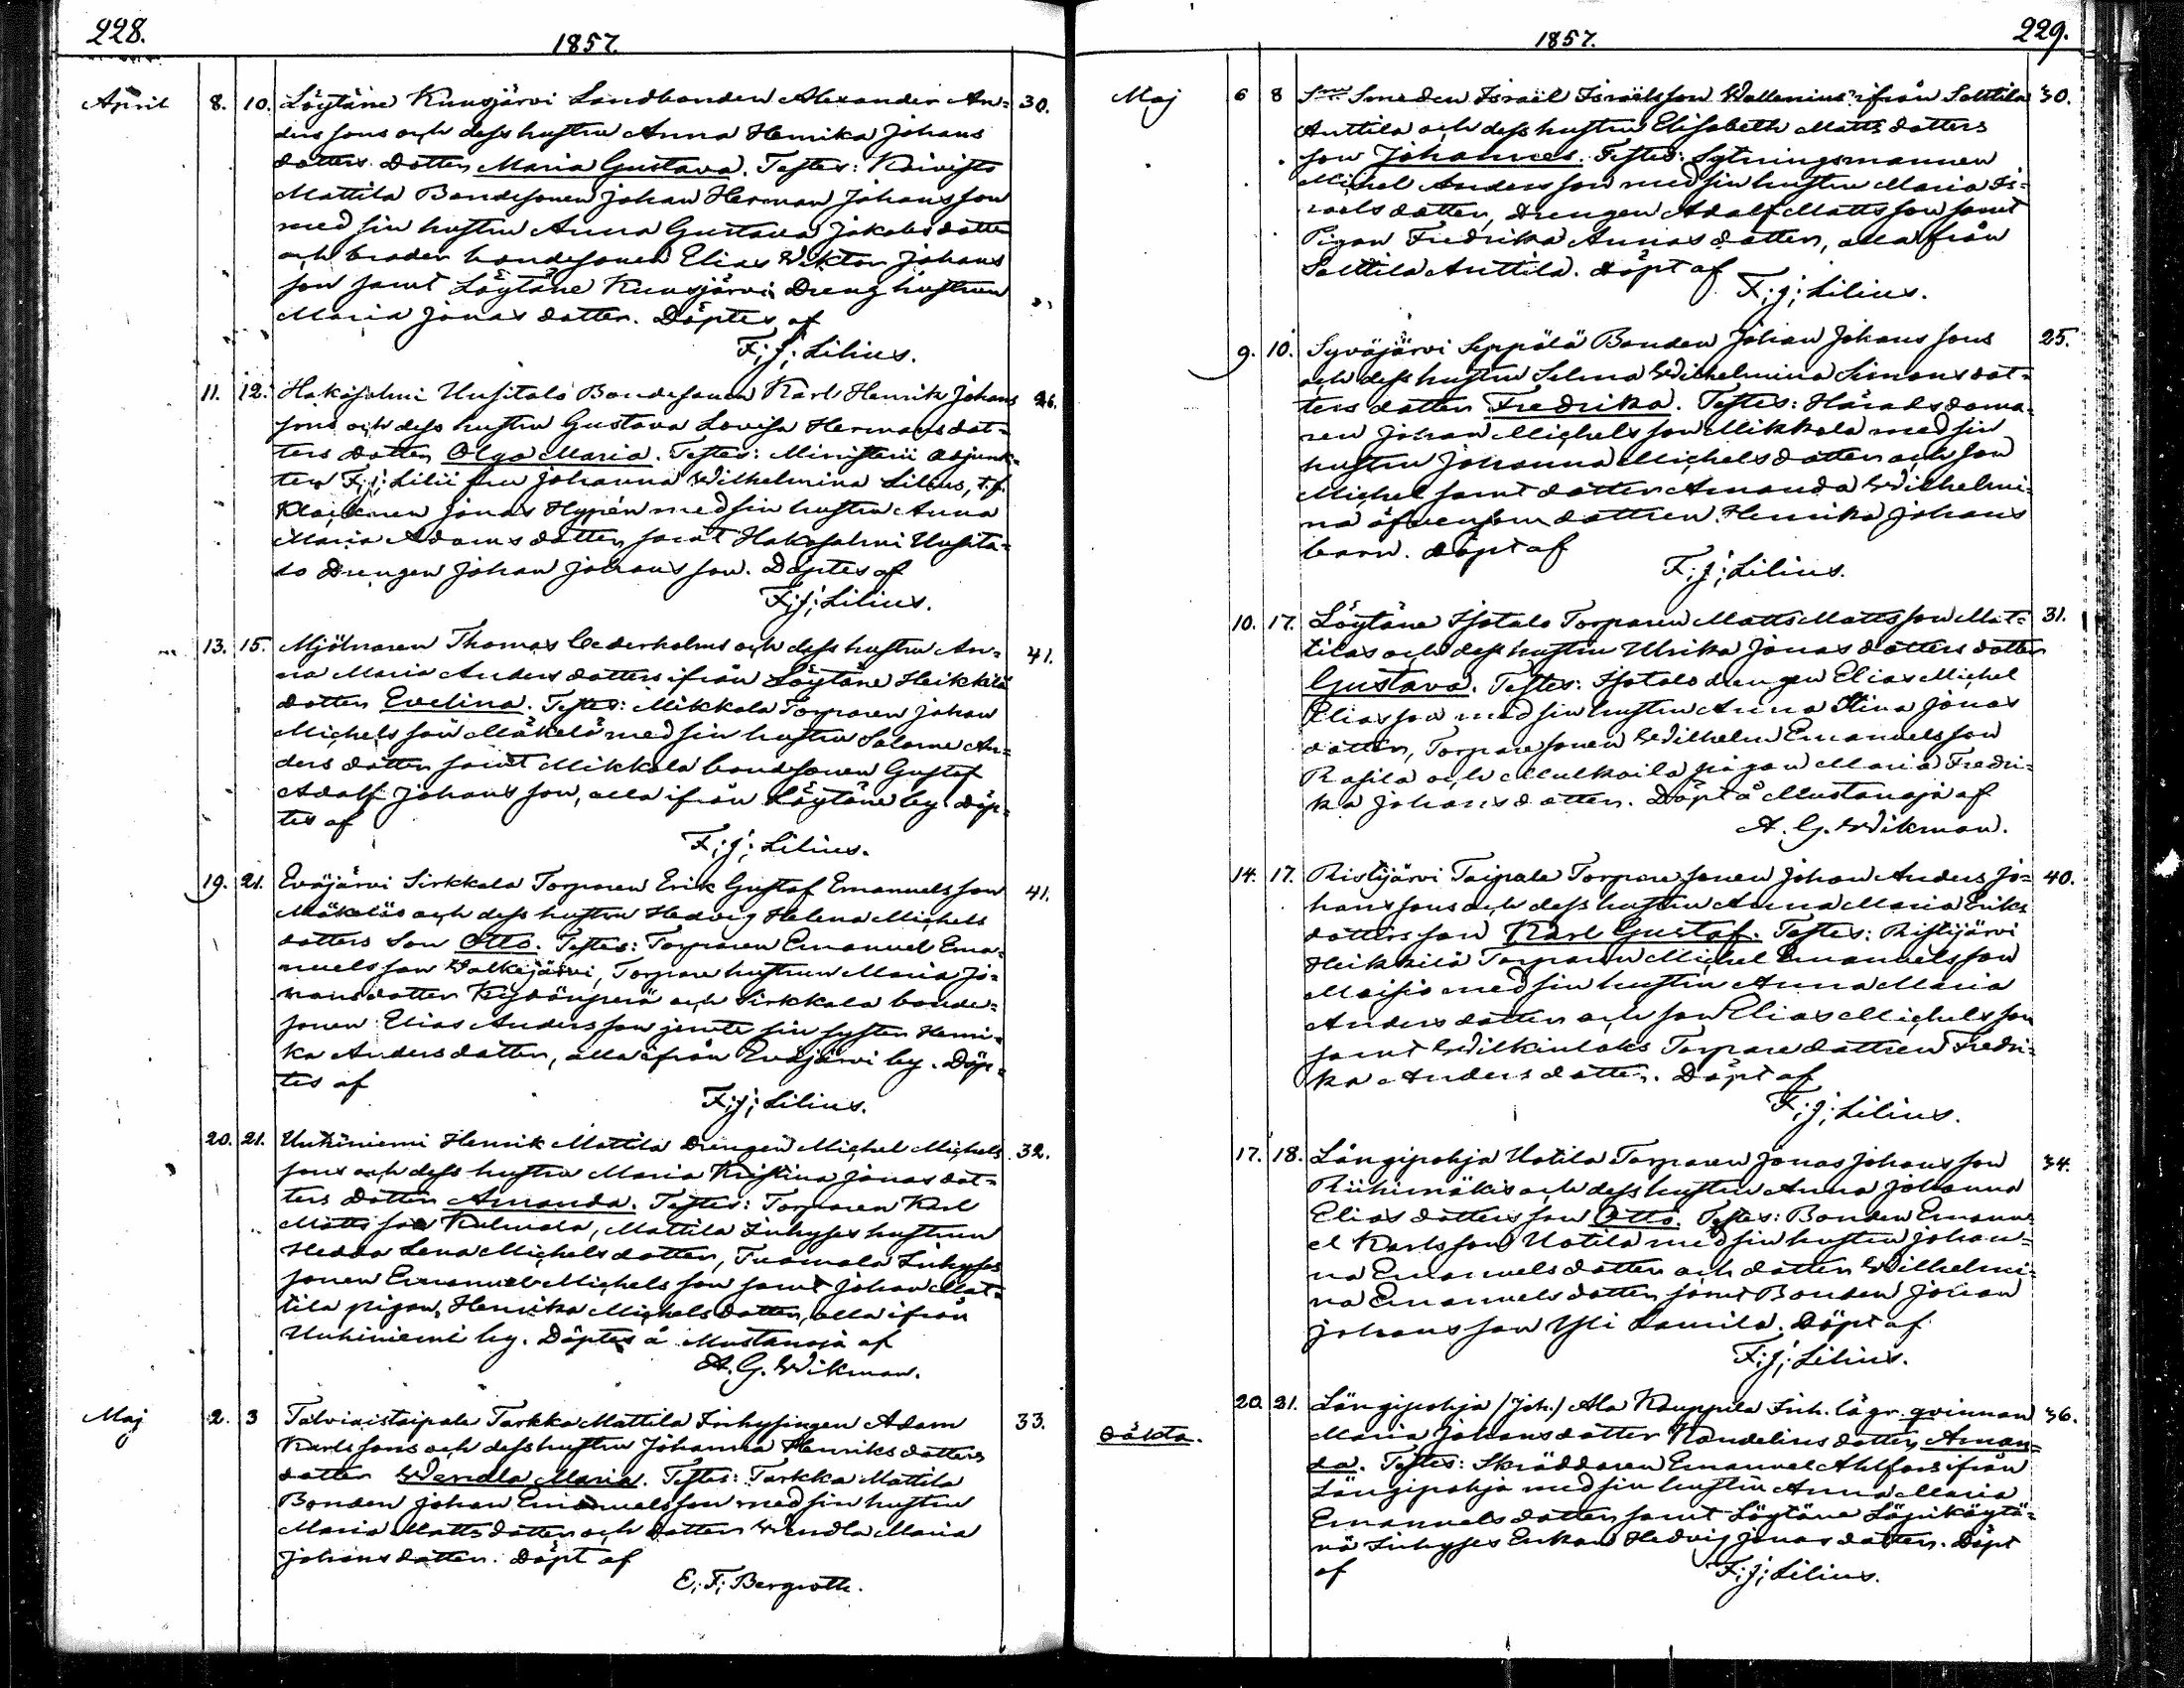 228.
1857.
April 8. 10. Löytäne Kuusjärvi Landbonden Alexander An= 30.
ders sons och dess hustru Anna Henrika Johans
dotters dotter Maria Gustava. Testes: Koivisto
Mattila Bondesonen Johan Herman Johansson
med sin hustru Anna Gustava Jakobsdotter
och broder bondesonen Elias Wiktor Johans
son samt Löytäne Kuusjärvi Dreng hustrun
Maria Jonas dotter. Döptes af
F; J; Lilius.
11. 12. Hakosalmi Uusitalo Bondesonen Karl Henrik Johans 26.
sons och dess hustru Gustava Lovisa Hermansdot=
ters dotter Olga Maria. Testes: Ministerii Adjunk=
ten F; J; Lilii fru Johanna Wilhelmina Lilius, t.f.
Klockaren Jonas Hypén med sin hustru Anna
Maria Adams dotter samt Hakosalmi Uusita=
lo Drengen Johan Johans son. Döptes af
F; J; Lilius.
13. 15. Mjölnaren Thomas Cederholms och dess hustru An= 41.
na Maria Anders dotters ifrån Löytäne Heikkilä
dotter Evelina. Testes: Mikkola Torparen Johan
Michelsson Mäkelä med sin hustru Salome An=
ders dotter samt Mikkola bondesonen Gustaf
Adolf Johans son, alla ifrån Löytäne by. Döp=
tes af
F; J; Lilius.
19. 21. Eväjärvi Sirkkala Torparen Erik Gustaf Emanuelsson 41.
Mäkeläs och dess hustru Hedvig Helena Michels
dotters Son Otto. Testes: Torparen Emanuel Ema=
nuelsson Valkejärvi, Torpare hustrun Maria Jo=
hansdotter Kydönperä och Sirkkala bonde=
sonen Elias Andersson jemte sin syster Henri=
ka Andersdotter, alla ifrån Eväjärvi by. Döp=
tes af
F; J; Lilius.
20. 21. Unkiniemi Henrik Mattila Drengen Michel Michels 32.
sons och dess hustru Maria Kristina Jonas dot=
ters dotter Amanda. Testes: Torparen Karl
Matts son Kulmala, Mattila Inhyses hustrun
Hedda Lena Michels dotter, Tuomala Inhyses
sonen Emanuel Michels son samt Johan Mat=
tila pigan, Henrika Michelsdotter, alla ifrån
Unkiniemi by. Döptes å Mustanoja af
A. G. Wikman.
Maj 2. 3 Talviaistaipale Tarkka Mattila Inhysingen Adam 33.
Karlssons och dess hustru Johanna Henriksdotters
dotter Wendla Maria. Testes: Tarkka Mattila
Bonden Johan Emanuelsson med sin hustru
Maria Mattsdotter och dotter Wendla Maria
Johansdotter. Döpt af
E; F; Bergroth.
1857.
229.
Maj 6 8 Smeden Israël Israëlsson Wallenius ifrån Solttila 30.
Anttila och dess hustru Elisabeth Matts dotters
son Johannes. Testes: Sytningsmannen
Michel Anders son med sin hustru Maria Is=
raels dotter, Drengen Adolf Matts son samt
Pigan Fredrika Annas dotter, alla från
Solttila Anttila. Döpt af
F; J; Lilius.
9. 10. Syväjärvi Seppälä Bonden Johan Johans sons 25.
och dess hustru Selma Wilhelmina Simonsdot=
ters dotter Fredrika. Testes: Häradsdoma=
ren Johan Michels son Mikkola med sin
hustru Johanna Michels dotter och son
Michel samt dotter Amanda Wilhelmi=
na äfvensom dottren Henrika Johans
barn. Döpt af
F; J; Lilius.
10. 17. Löytäne Isotalo Torparen Matts Matts son Mat= 31.
tilas och dess hustru Ulrika Jonas dotters dotter
Gustava. Testes: Isotalo drengen Elias Michel
Elias son med sin hustru Anna Stina Jonas
dotter, Torparesonen Wilhelm Emanuelsson
Rasila och Mulkoila pigan Maria Fredri=
ka Johansdotter. Döpt å Mustanoja af
A. G. Wikman.
14. 17. Ristijärvi Taipale Torparesonen Johan Anders Jo= 40.
hanssons och dess hustru Anna Maria Eriks
dotters son Karl Gustaf. Testes: Ristijärvi
Heikkilä Torparen Michel Emanuelsson
Moisio med sin hustru Anna Maria
Anders dotter och son Elias Michels son
samt Wilkinlaks Torparedottren Fredri=
ka Anders dotter. Döpt af
F; J; Lilius.
17. 18. Längipohja Uotila Torparen Jonas Johansson 34.
Riihimäkis och dess hustru Anna Johanna
Elias dotters son Otto. Testes: Bonden Emanu=
el Karlsson Uotila med sin hustru Johan=
na Emanuels dotter och dotter Wilhelmi=
na Emanuels dotter samt Bonden Johan
Johansson Yli Lamila. Döpt af
F; J; Lilius.
20. 21. Längipohja (Joh.) Ala Kauppila Inh. lägr. qvinnan 36.
oäkta. Maria Johansdotter Kandelins dotter Aman=
da. Testes: Skräddaren Emanuel Ahlfors ifrån
Längipohja med sin hustru Anna Maria
Emanuels dotter samt Löytäne Läpiköytä=
nä Inhyses Enkan Hedvig Jonas dotter. Döpt
af F; J; Lilius.